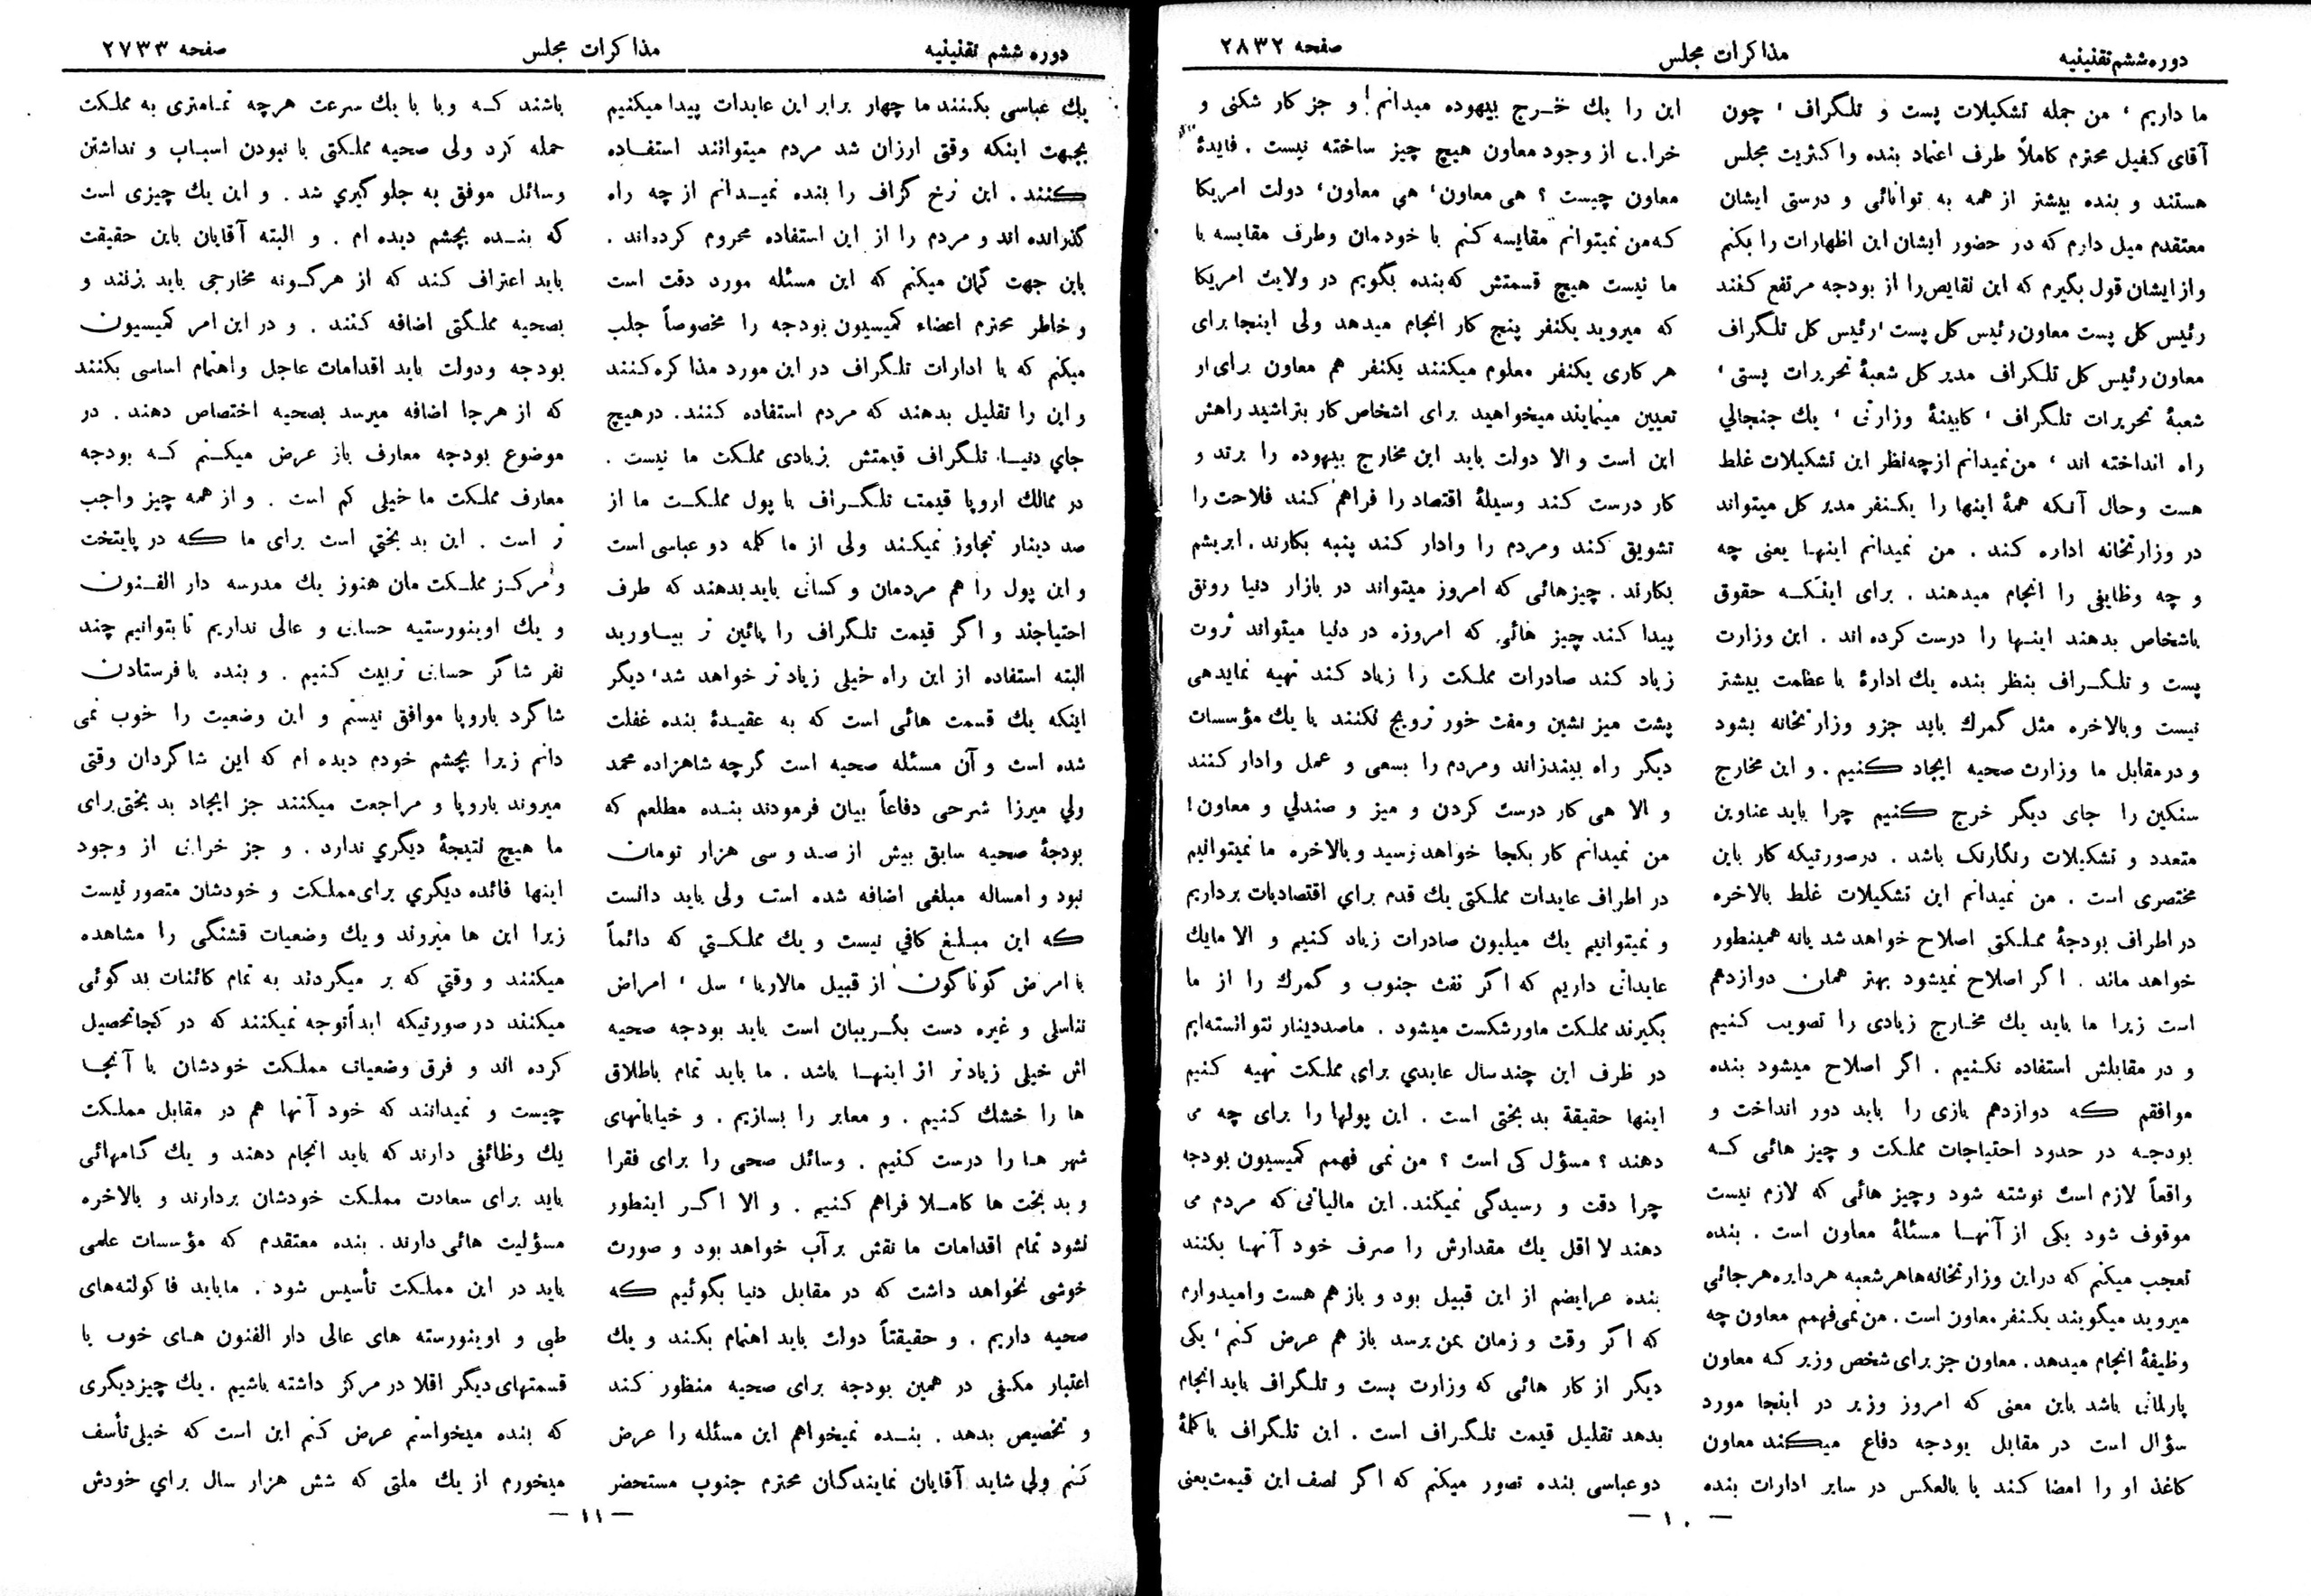 دوره ششم تقنینیه
مذاکرات مجلس
صفحه ۲۸۳۲
ما داریم ، من جمله تشکیلات پست و تلگراف ، چون
آقای کفیل محترم کاملاً طرف اعتماد بنده و اکثریت مجلس
هستند و بنده بیشتر از همه به توانائی و درستی ایشان
معتقدم میل دارم که در حضور ایشان این اظهارات را بکنم
و از ایشان قول بگیرم که این نقایص را از بودجه مرتفع کنند
رئیس کل پست معاون رئیس کل پست ، رئیس کل تلگراف
معاون رئیس کل تلگراف مدیر کل شعبهٔ تحریرات پستی ،
شعبهٔ تحریرات تلگراف ، کابینهٔ وزارتی ، یك جنجالي
راه انداخته اند ، من نمیدانم از چه نظر این تشکیلات غلط
هست و حال آنکه همهٔ اینها را یکنفر مدیر کل میتواند
در وزارتخانه اداره کند . من نمیدانم اینها یعنی چه
و چه وظایفی را انجام میدهند . برای اینکه حقوق
باشخاص بدهند اینها را درست کرده اند . این وزارت
پست و تلگراف بنظر بنده یك ادارهٔ با عظمت بیشتر
نیست و بالاخره مثل گمرك باید جزو وزارتخانه بشود
و در مقابل ما وزارت صحیه ایجاد کنیم . و این مخارج
سنگین را جای دیگر خرج کنیم چرا باید عناوین
متعدد و تشکیلات رنگارنگ باشد . درصورتیکه کار باین
مختصری است . من نمیدانم این تشکیلات غلط بالاخره
در اطراف بودجهٔ مملکتی اصلاح خواهد شد یانه همینطور
خواهد ماند . اگر اصلاح نمیشود بهتر همان دوازدهم
است زیرا ما باید یك مخارج زیادی را تصویب کنیم
و در مقابلش استفاده نکنیم . اگر اصلاح میشود بنده
موافقم که دوازدهم بازی را باید دور انداخت و
بودجه در حدود احتیاجات مملکت و چیز هائی که
واقعاً لازم است نوشته شود و چیز هائی که لازم نیست
موقوف شود یکی از آنها مسئلهٔ معاون است . بنده
تعجب میکنم که در این وزارتخانه ها هر شعبه هر دایره هر جائي
میروید میگویند یکنفر معاون است . من نمی فهمم معاون چه
وظیفهٔ انجام میدهد . معاون جز برای شخص وزیر که معاون
پارلمانی باشد باین معنی که امروز وزیر در اینجا مورد
سؤال است در مقابل بودجه دفاع میکند معاون
کاغذ او را امضا کند یا بالعکس در سایر ادارات بنده
این را یك خرج بیهوده میدانم! و جز کار شکنی و
خرابی از وجود معاون هیچ چیز ساخته نیست . فایدهٔ
معاون چیست ؟ هی معاون ، هي معاون ، دولت امریکا
که من نمیتوانم مقایسه کنم با خودمان و طرف مقایسه با
ما نیست هیچ قسمتش که بنده بگویم در ولایت امریکا
که میروید یکنفر پنج کار انجام میدهد ولی اینجا برای
هر کاری یکنفر معلوم میکنند یکنفر هم معاون برای او
تعیین مینمایند میخواهید برای اشخاص کار بتراشید راهش
این است و الا دولت باید این مخارج بیهوده را بزند و
کار درست کند وسیلهٔ اقتصاد را فراهم کند فلاحت را
تشویق کند و مردم را وادار کند پنبه بکارند . ابریشم
بکارند . چیزهائی که امروز میتواند در بازار دنیا رونق
پیدا کند چیز هائی که امروزه در دنیا میتواند ثروت
زیاد کند صادرات مملکت را زیاد کند تهیه نماید هی
پشت میز نشین و مفت خور ترویج نکنند با یك مؤسسات
دیگر راه بیندزاند و مردم را بسعی و عمل وادار کنند
و الا هی کار درست کردن و میز و صندلي و معاون !
من نمیدانم کار بکجا خواهد رسید و بالاخره ما نمیتوانیم
در اطراف عایدات مملکتی یك قدم براي اقتصادیات برداریم
و نمیتوانیم یك میلیون صادرات زیاد کنیم و الا ما یك
عایداتی داریم که اگر نفت جنوب و گمرك را از ما
بگیرند مملکت ما ورشکست میشود . ما صد دینار نتوانسته ایم
در ظرف این چند سال عایدي برای مملکت تهیه کنیم
اینها حقیقة بدبختی است . این پولها را برای چه می
دهند ؟ مسؤل کی است ؟ من نمی فهمم کمیسیون بودجه
چرا دقت و رسیدگی نمیکند . این مالیاتی که مردم می
دهند لا اقل یك مقدارش را صرف خود آنها بکنند
بنده عرایضم از این قبیل بود و باز هم هست و امیدوارم
که اگر وقت و زمان بمن برسد باز هم عرض کنم ، یکی
دیگر از کار هائی که وزارت پست و تلگراف باید انجام
بدهد تقلیل قیمت تلگراف است . این تلگراف با کلمهٔ
دو عباسی بنده تصور میکنم که اگر نصف این قیمت یعنی
— ۱۰ —
دوره ششم تقنینیه
مذاکرات مجلس
صفحه ۲۷۳۳
یك عباسی بکنند ما چهار برابر این عایدات پیدا میکنیم
بجهت اینکه وقتی ارزان شد مردم میتوانند استفاده
کنند . این نرخ گزاف را بنده نمیدانم از چه راه
گذرانده اند و مردم را از این استفاده محروم کرده اند .
باین جهت گمان میکنم که این مسئله مورد دقت است
و خاطر محترم اعضاء کمیسیون بودجه را مخصوصاً جلب
میکنم که با ادارات تلگراف در این مورد مذاکره کنند
و این را تقلیل بدهند که مردم استفاده کنند . در هیچ
جاي دنیا تلگراف قیمتش بزیادی مملکت ما نیست .
در ممالك اروپا قیمت تلگراف با پول مملکت ما از
صد دینار تجاوز نمیکند ولی از ما کلمه دو عباسی است
و این پول را هم مردمان و کسانی باید بدهند که طرف
احتیاجند و اگر قیمت تلگراف را پائین تر بیاورید
البته استفاده از این راه خیلی زیاد تر خواهد شد ، دیگر
اینکه یك قسمت هائی است که به عقیدهٔ بنده غفلت
شده است و آن مسئله صحیه است گرچه شاهزاده محمد
ولي میرزا شرحی دفاعاً بیان فرمودند بنده مطلعم که
بودجهٔ صحیه سابق بیش از صد و سی هزار تومان
نبود و امساله مبلغی اضافه شده است ولی باید دانست
که این مبلغ کافي نیست و یك مملکتي که دائماً
با امرض گوناگون از قبیل مالاریا ، سل ، امراض
تناسلی و غیره دست بگریبان است باید بودجه صحیه
اش خیلی زیادتر از اینها باشد . ما باید تمام باطلاق
ها را خشك کنیم . و معابر را بسازیم . و خیابانهای
شهر ها را درست کنیم . وسائل صحی را برای فقرا
و بدبخت ها کاملا فراهم کنیم . و الا اگر اینطور
نشود تمام اقدامات ما نقش بر آب خواهد بود و صورت
خوشی نخواهد داشت که در مقابل دنیا بگوئیم که
صحیه داریم . و حقیقتاً دولت باید اهتمام بکند و یك
اعتبار مکفی در همین بودجه برای صحیه منظور کند
و تخصیص بدهد . بنده نمیخواهم این مسئله را عرض
کنم ولی شاید آقایان نمایندگان محترم جنوب مستحضر
باشند که وبا با یك سرعت هر چه تمامتری به مملکت
حمله کرد ولی صحیه مملکتی با نبودن اسباب و نداشتن
وسائل موفق به جلو گیري شد . و این یك چیزی است
که بنده بچشم دیده ام . و البته آقایان باین حقیقت
باید اعتراف کنند که از هر گونه مخارجی باید بزنند و
بصحیه مملکتی اضافه کنند . و در این امر کمیسیون
بودجه و دولت باید اقدامات عاجل و اهتمام اساسی بکنند
که از هر جا اضافه میرسد بصحیه اختصاص دهند . در
موضوع بودجه معارف باز عرض میکنم که بودجه
معارف مملکت ما خیلی کم است . و از همه چیز واجب
تر است . این بد بختي است برای ما که در پایتخت
و مرکز مملکت مان هنوز یك مدرسه دار الفنون
و یك اوینورستیه حسابی و عالی نداریم تا بتوانیم چند
نفر شاگر حسابی تربیت کنیم . و بنده با فرستادن
شاگرد باروپا موافق نیستم و این وضعیت را خوب نمی
دانم زیرا بچشم خودم دیده ام که این شاگردان وقتی
میروند باروپا و مراجعت میکنند جز ایجاد بدبختی برای
ما هیچ نتیجهٔ دیگري ندارد . و جز خرابی از وجود
اینها فائده دیگري برای مملکت و خودشان متصور نیست
زیرا این ها میروند و یك وضعیات قشنگی را مشاهده
میکنند و وقتي که بر میگردند به تمام کائنات بدگوئی
میکنند در صورتیکه ابداً توجه نمیکنند که در کجا تحصیل
کرده اند و فرق وضعیات مملکت خودشان با آنجا
چیست و نمیدانند که خود آنها هم در مقابل مملکت
یك وظائفی دارند که باید انجام دهند و یك گامهائی
باید برای سعادت مملکت خودشان بردارند و بالاخره
مسؤلیت هائی دارند . بنده معتقدم که مؤسسات علمی
باید در این مملکت تأسیس شود . ما باید فاکولته های
طبی و اوینورسته های عالی دار الفنون های خوب با
قسمتهای دیگر اقلا در مرکز داشته باشیم . یك چیز دیگری
که بنده میخواستم عرض کنم این است که خیلی تأسف
میخورم از یك ملتی که شش هزار سال براي خودش
— ۱۱ —